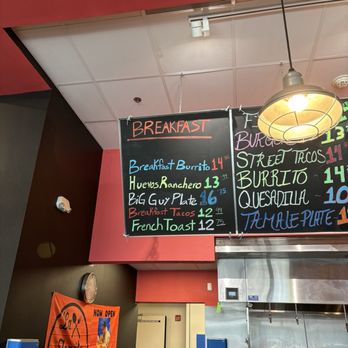 BREAKFAST
Breakfast Burrito 14
Huevos Ranchero 13
BIG Guy Plate 16
Breakfast Tacos 12
French Toast 12
BURG
STREET TACOS
BURRITO 14
QUESADILLA 10
TAMALE PLATE
NOW OPEN